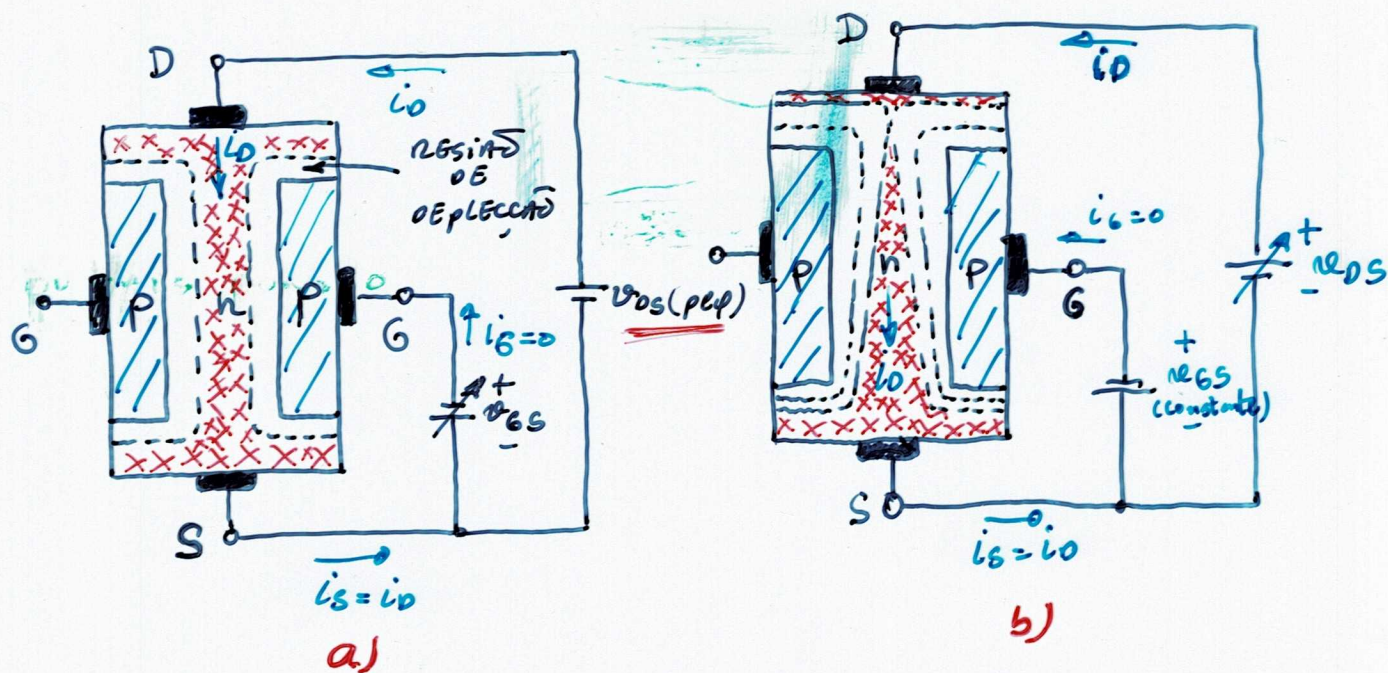 D
iD
iD
REGIÃO
DE
DEPLECÇÃO
G
P
n
P
G
iG=0
+
vGS
-
vDS(peq)
S
iS=iD
a)
D
iD
P
n
P
iG=0
G
+
vDS
-
+
vGS
(constante)
-
iD
S
iS=iD
b)